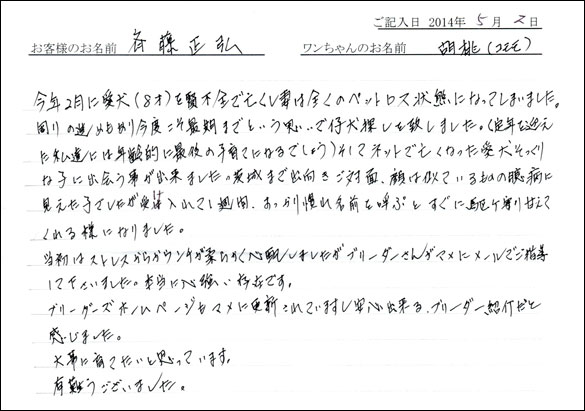 ご記入日 2014年 5月 2日
お客様のお名前 斉藤正弘 ワンちゃんのお名前 胡桃(ココモモ)
今年2月に愛犬(8才)を腎不全で亡くし妻は全くのペットロス状態になってしまいました。
周りの進めもあり今度こそ最期までという思いで仔犬探しを致しました。(定年を迎え
た私達には年齢的に最後の子育てになるでしょう)そしてネットで亡くなった愛犬そっくり
な子に出会う事が出来ました。茨城まで出向きご対面、顔は似ているものの臆病に
見えた子でしたが受け入れて1週間、すっかり慣れ名前を呼ぶとすぐに駆け寄り甘えて
くれる様になりました。
当初はストレスからかウンチが柔らかく心配しましたがブリーダーさんがマメにメールでご指導
して下さいました。本当に心強い存在です。
ブリーダーズホームページもマメに更新されていますし安心出来る、ブリーダー紹介だと
感じました。
大事に育てたいと思っています。
有難うございました。